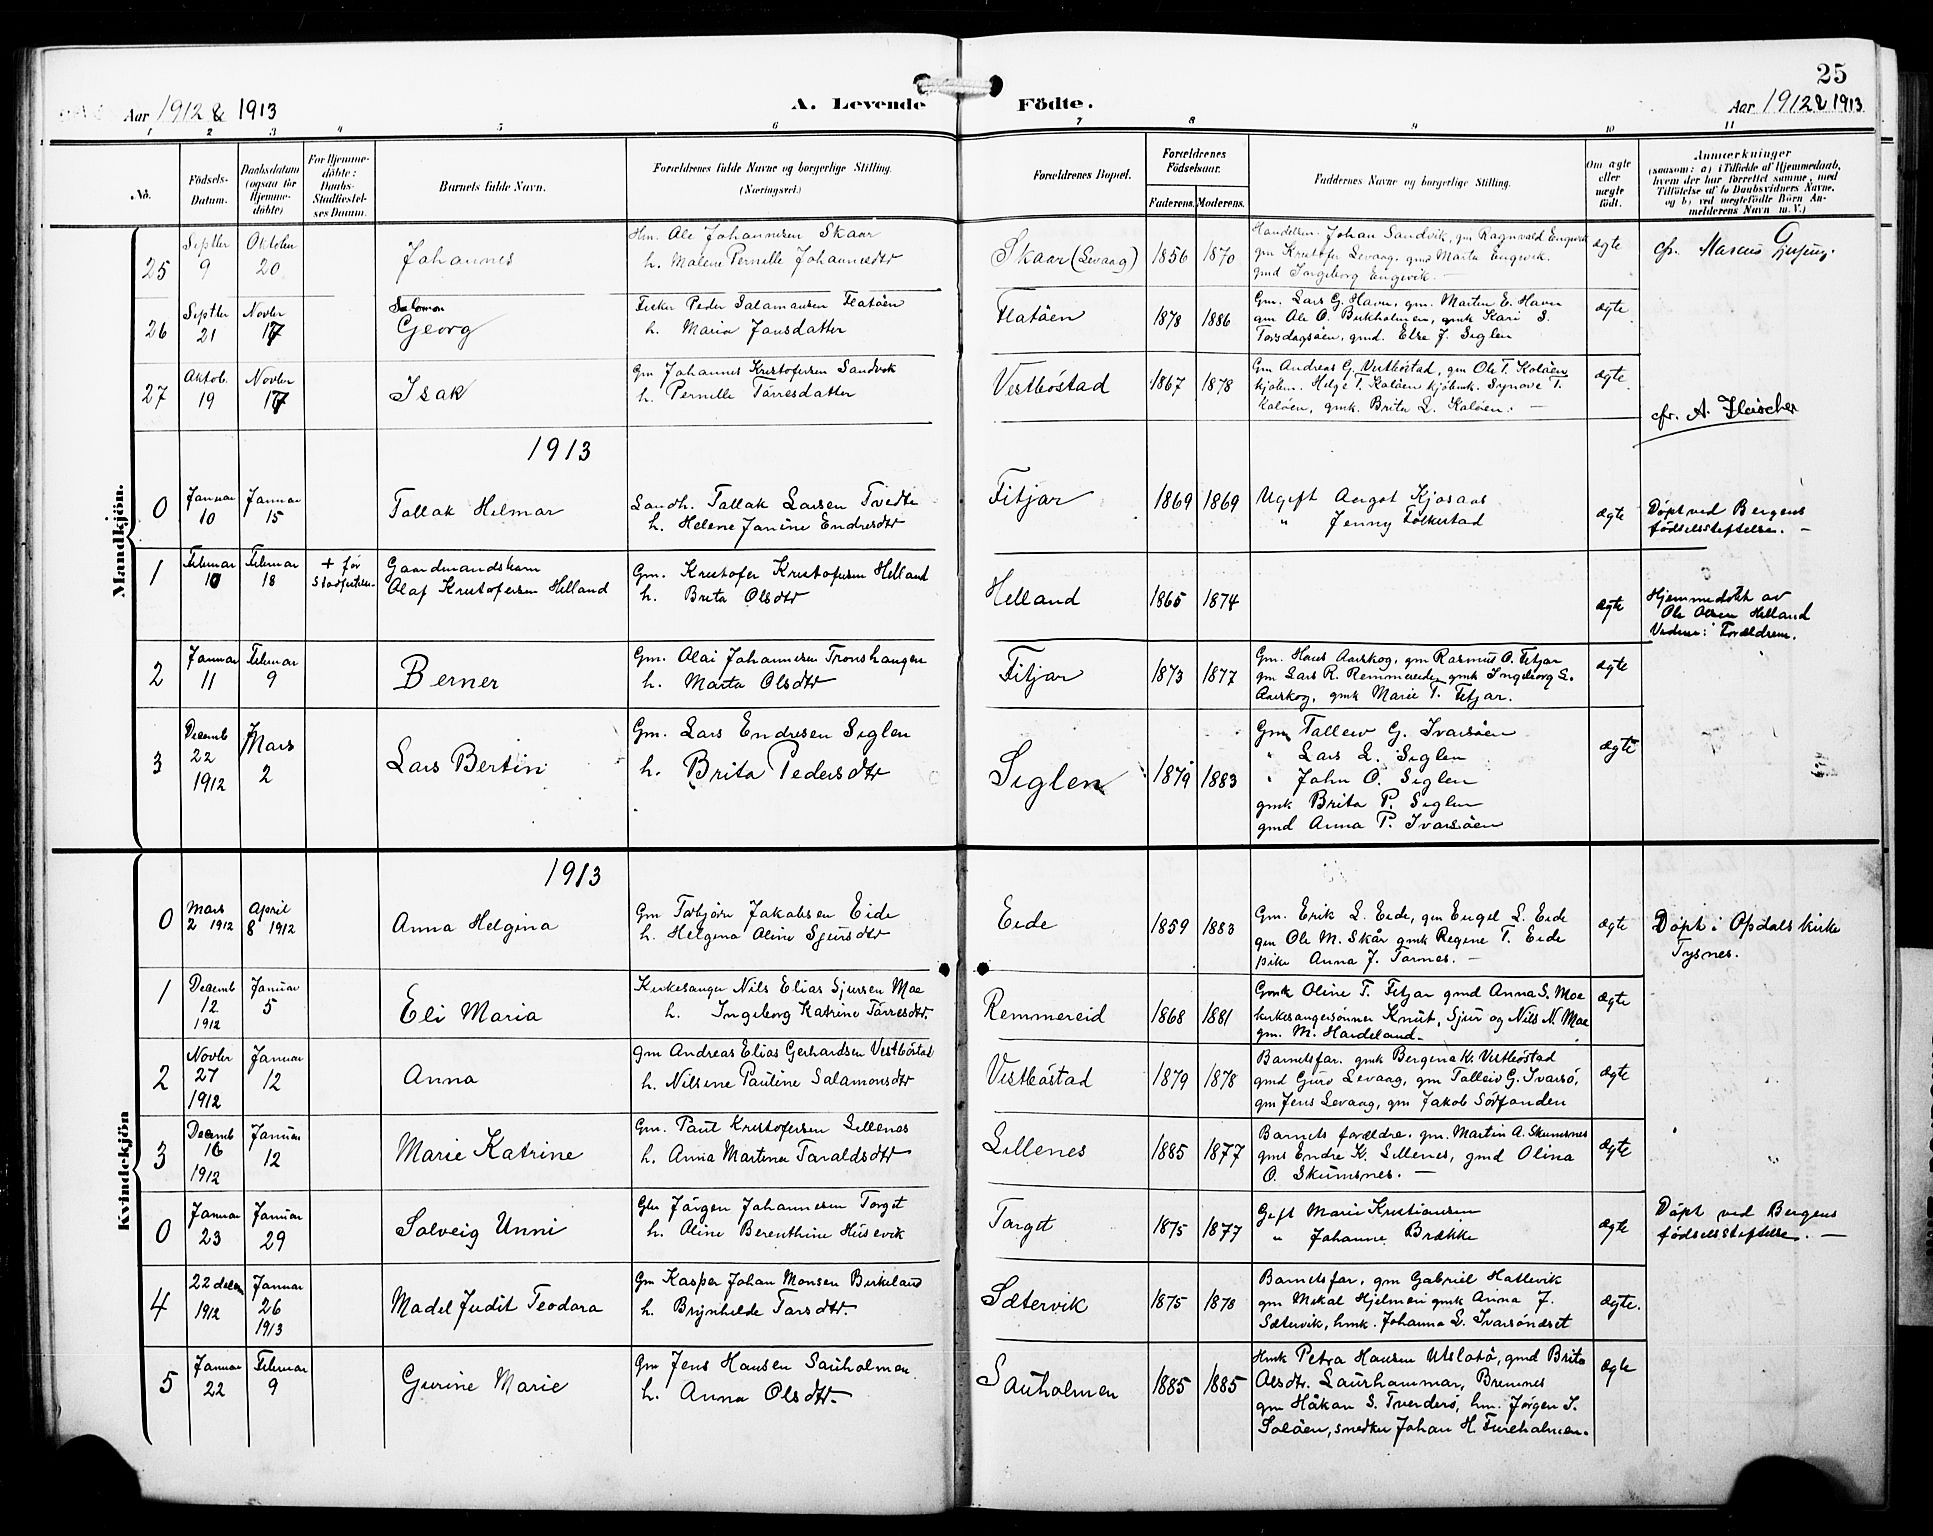 25
Aar 1912 & 1913
A. Levende Födte.
Aar 1912 & 1913
1 2 3 4 5 6 7 8 9 10 11
No.
Fødsels-Datum.
Daabsdatum (ogsaa for Hjemme-döbte)
For Hjemme-döbte: Daabs-Stadfæstel-ses Datum.
Barnets fulde Navn.
Forældrenes fulde Navne og borgerlige Stilling. (Næringsvei.)
Forældrenes Bopæl.
Forældrenes Födselsaar.
Faderens. Moderens.
Faddernes Navne og borgerlige Stilling.
Om ægte eller uægte födt.
Anmærkninger
(saasom: a) i Tilfælde af Hjemmedaab, hvem der har forrettet samme, med Tilföielse af to Daabsvidners Navne, og b) ved uægtefödte Börn An-melderens Navn m. V.)
Mandkjön.
25 Septbr 9 Oktober 20 Johannes
Hm. Ole Johannesen Skaar
h. Malene Pernille Johannesdtr
Skaar (Levaag) 1856 1870
Handelsm. Johan Sandvik, gm Ragnvald Engevik
gm Kristofer Levaag, gmd Marta Engevik.
gmd Ingeborg Engevik. —
ægte
26 Septbr 21 Novbr 17 Salomon Georg
Fisker Peder Salamonsen Flatöen
h. Maria Jansdatter
Flatöen 1878 1886
Gm. Lars G. Havn, gm. Martin E. Havn
gm Ole O. Birkholmen, gmk Kari S.
Torsdagsöen, gmd. Else J. Siglen
ægte
27 Oktob. 19 Novbr 17 Isak
Gm Johannes Kristofersen Sandvik
h. Pernille Törresdatter
Vestböstad 1867 1878
Gm Andreas G. Vestböstad, gm Ole T. Kalöen
kjøbm. Helge T. Kalöen kjøbmk. Synöve T.
Kalöen, gmk. Brita L. Kalöen. —
ægte
cfr. A. Fleischer
1913
0 Januar 10 Januar 15 Tallak Helmar
Landh. Tallak Larsen Tvedte
h. Helene Janine Endresdtr
Fitjar 1869 1869
Ugift Aagot Kjosaas
" Jenny Folkestad
ægte
Døpt ved Bergens
fødselsstiftelse. —
1 Februar 10 Februar 18 + før Stadfestelsen
Gaardmandsbarn
Olaf Kristofersen Helland
Gm. Kristofer Kristofersen Helland
h. Brita Olsdtr
Helland 1865 1874
ægte
Hjemmedöbt av
Ole Olsen Helland
Vidner: Forældrene.
2 Januar 11 Februar 9 Berner
Gm. Olai Johannesen Tronshaugen
h. Marta Olsdtr
Fitjar 1873 1877
Gm. Hans Aarskog, gm Rasmus O. Fitjar
gm Lars R. Remmereide, gmk Ingeborg L.
Aarskog, gmk Marie T. Fitjar.
ægte
3 Decemb 22 1912 Mars 2 Lars Bertin
Gm. Lars Endresen Siglen
h. Brita Pedersdtr
Siglen 1879 1883
Gm Falleiv G. Ivarsöen
" Lars L. Siglen
" John O. Siglen
gmk Brita P. Siglen
gmd Anna P. Ivarsöen
ægte
Kvindekjön
1913
0 Mars 2 1912 April 8 1912 Anna Helgina
Gm Torbjörn Jakobsen Eide
h. Helgina Oline Sjursdtr
Eide 1859 1883
Gm. Erik L. Eide, gm Engel L. Eide
gm Ole M. Skår gmk Regine T. Eide
pike Anna J. Tornes. —
ægte
Døpt i Opdals kirke
Tysnes.
1 Decemb 12 1912 Januar 5 Eli Maria
Kirkesanger Nils Elias Sjursen Moe
h. Ingeborg Katrine Törresdtr.
Remmereid 1868 1881
Gmk Oline T. Fitjar gmd Anna S. Moe
kirkesangersönner Knut, Sjur og Nils N. Moe
gm. M. Hardeland.
ægte
2 Novbr 27 1912 Januar 12 Anna
gm Andreas Elias Gerhardsen Vestböstad
h. Nilsine Pauline Salamonsdtr
Vestböstad 1879 1878
Barnets far. gmk Bergina K. Vestböstad
gmd Guro Levaag, gm Falleiv G. Ivarsö,
gm Jens Levaag, gm Jakob Sörfonden
ægte
3 Decemb 16 1912 Januar 12 Marie Katrine
Gm. Paul Kristofersen Lillenes
h. Anna Martina Taraldsdtr
Lillenes 1885 1877
Barnets forældre. gm. Martin A. Skumsnes
gm Endre K. Lillenes, gmd Olina
O. Skumsnes. —
ægte
0 Januar 23 Januar 29 Solveig Unni
Jörgen Johannesen Torget
h. Oline Berenthine Husevik
Torget 1875 1877
Gift Marie Kristiansen
" Johanne Brække
ægte
Döpt ved Bergens
födselsstiftelse. —
4 22 decbr 1912 Januar 26 1913 Madel Judit Teodora
Gm Kasper Johan Monsen Birkeland
h. Brynhilde Torsdtr.
Sætervik 1875 1878
Barnets far, gm Gabriel Hatlevik
gm Mikal Hjelmen gmk Anna J.
Sætervik, hmk. Johanna L. Ivarsönæset
ægte.
5 Januar 22 Februar 9 Gurine Marie
Gm Jens Hansen Sauholmen
h. Anna Olsdtr.
Sauholmen 1885 1885
Hmk Petra Hansen Utslatö, gmd Brita
Olsdtr. Laurhammar, Bremnes
gm Håkan S. Tverderö, hm. Jörgen S.
Solöen, snedker Johan H. Fureholmen.
ægte